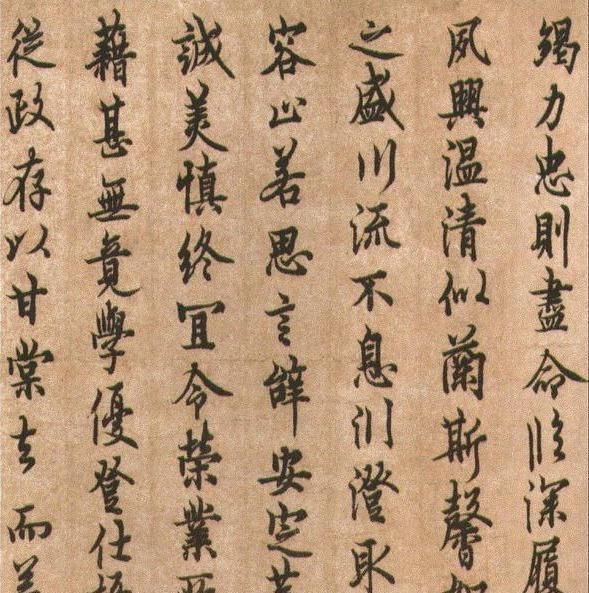 竭力忠則盡命臨深履
夙興温清似蘭斯馨如
之盛川流不息渊澄取
容止若思言辭安定
誠美慎終宜令榮業所
藉甚無竟學優登仕
從政存以甘棠去而益